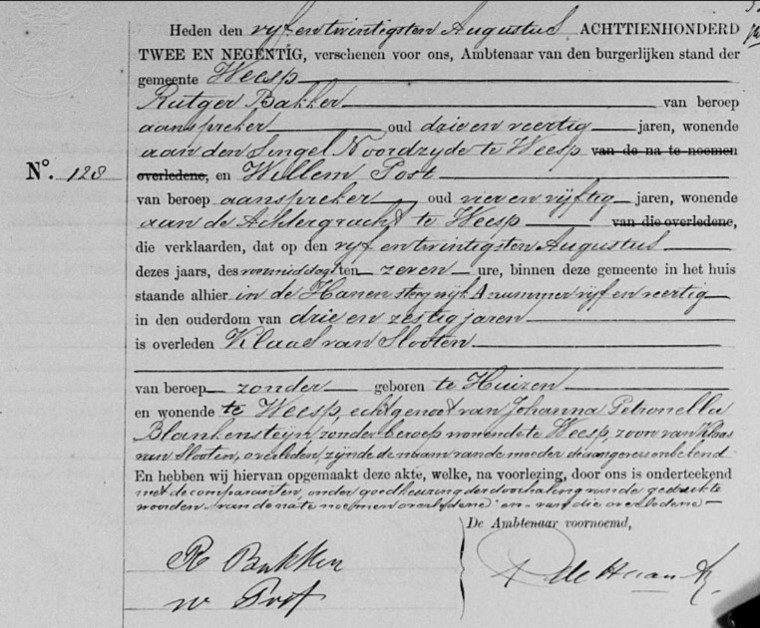 Heden den vyf en twintigsten Augustus ACHTTIENHONDERD
TWEE EN NEGENTIG, verschenen voor ons, Ambtenaar van den burgerlijken stand der
gemeente Weesp
Rutger Bakker van beroep
aanspreker oud drie en veertig jaren, wonende
aan den Singel Noordzyde te Weesp van de na te noemen
N°. 128
overledene, en Willem Post
van beroep aanspreker, oud vier en vyftig jaren, wonende
aan de Achtergracht te Weesp van die overledene,
die verklaarden, dat op den vyf en twintigsten Augustus
dezes jaars, des voormiddags ten zeven ure, binnen deze gemeente in het huis
staande alhier in de Hanensteeg wyk A nummer vyf en veertig
in den ouderdom van drie en zestig jaren
is overleden Klaas van Slooten
van beroep zonder geboren te Huizen
en wonende te Weesp, echtgenoot van Johanna Petronella
Blankensteyn, zonder beroep wonende te Weesp, zoon van Klaas
van Slooten, overleden, zynde de naam van de moeder disaangeres onbekend
En hebben wij hiervan opgemaakt deze akte, welke, na voorlezing, door ons is onderteekend
met de comparanten, onder goedkeuring der doorhaling van de gedrukte
woorden "van de na te noemen overledene" en "van die overledene"
De Ambtenaar voornoemd,
R Bakker
w Post
de Haan